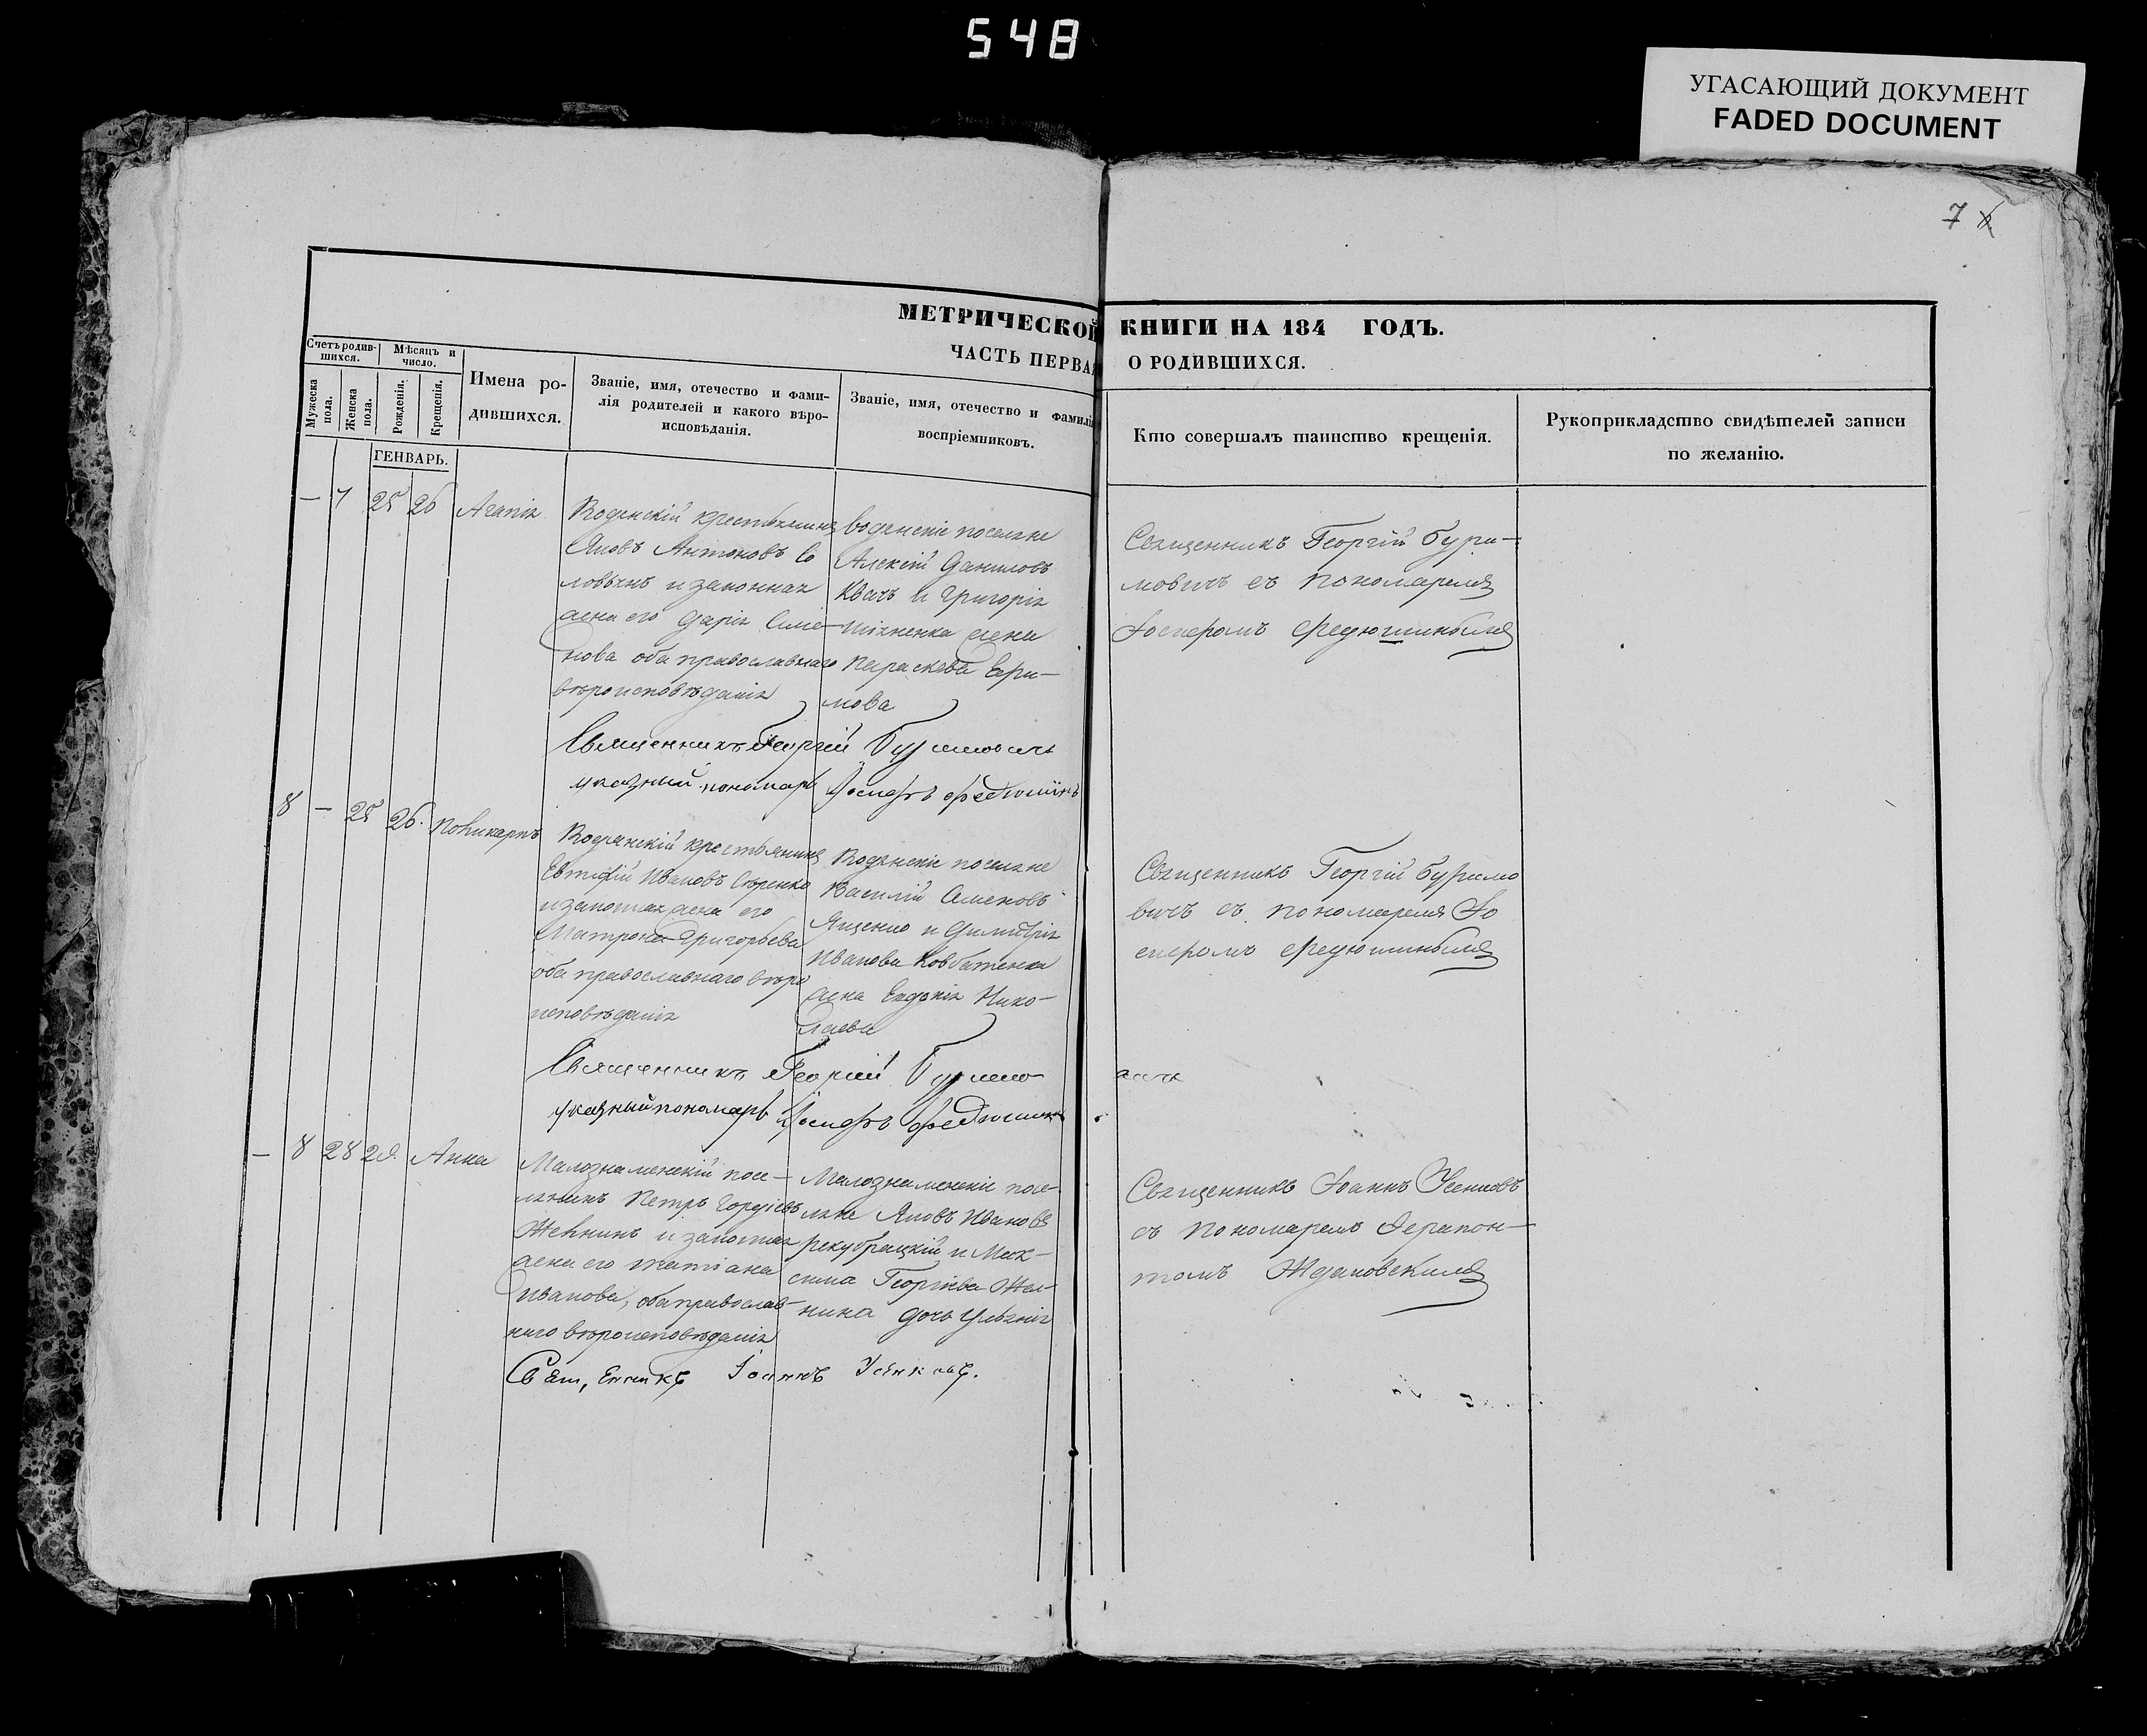 548
УГАСАЮЩИЙ ДОКУМЕНТ
FADED DOCUMENT
7
МЕТРИЧЕСКОЙ КНИГИ НА 184 ГОДЪ.
ЧАСТЬ ПЕРВАЯ О РОДИВШИХСЯ.
Счетъ родив-
шихся.
Мѣсяцъ и
число.
Мужеска
пола.
Женска
пола.
Рожденія.
Крещенія.
Имена ро-
дившихся.
Званіе, имя, отечество и фами-
лія родителей и какого вѣро-
исповѣданія.
Званіе, имя, отечество и фамилія
воспріемниковъ.
Кто совершалъ таинство крещенія.
Рукоприкладство свидѣтелей записи
по желанію.
ГЕНВАРЬ.
— 7 25 26 Агапія
Водянскій крестьянинъ
Яковъ Антоновъ Со
ловьянъ и законная
жена его Дарія Симо-
нова оба православнаго
вѣроисповѣданія
водянскіе поселяне
Алексій Даниловъ
Квачъ и Григорія
жена
Параскева Ефи-
мова
Священникъ Георгій Бури-
мовичъ съ пономаремъ
Іосифомъ Федюшинымъ
Священникъ Георгій Буримовичъ
указный пономарь Іосифъ Федюшинъ
8 — 25 26. Поликарпъ
Водянскій крестьянинъ
Евтифій Ивановъ Сѣренко
и законная жена его
Матрона Григорьева
оба православнаго вѣро
исповѣданія
Водянскіе поселяне
Василій Семеновъ
Яценко и Димитрія
Иванова Ковбатенка
жена Евдокія Нико-
лаева
Священникъ Георгій Буримо
вичъ съ пономаремъ Іо
сифомъ Федюшинымъ
Священникъ Георгій Буримо-
вичъ
указный пономарь Іосифъ Федюшинъ
— 8 28 29. Анна
Малознаменскій посе-
лянинъ Петръ Гордіевъ
Желнинъ и законная
жена его Татіана
Иванова, оба православ-
наго вѣроисповѣданія
Малознаменскіе посе-
ляне Яковъ Ивановъ
и Мак-
сима Георгіева Жел-
нина дочь Ульянія
Священникъ Іоаннъ Усенковъ
съ пономаремъ Ферапон-
томъ Ждановскимъ
Священникъ Іоаннъ Усенковъ.